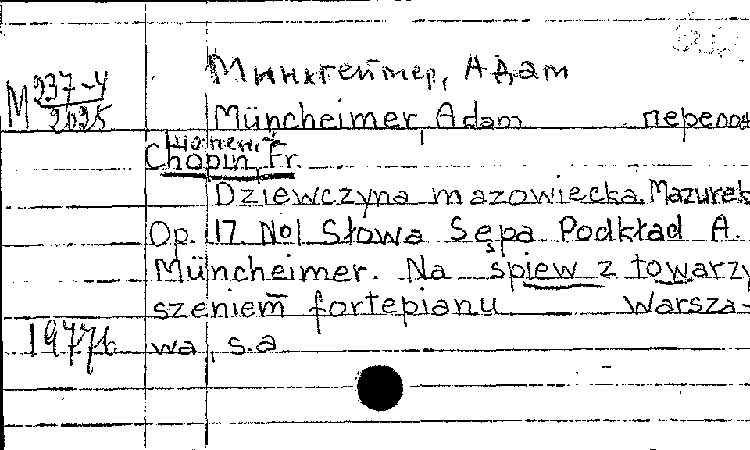 Минхгеймер, Адам
М 237-4
2035
Müncheimer, Adam перелож
Шопен Ф
Chopin, Fr.
Dziewczyna mazowiecka. Mazurek
Op. 17 No1 Słowa Sępa Podkład A.
Müncheimer. Na śpiew z towarzy
szeniem fortepianu Warsza-
wa, s.a